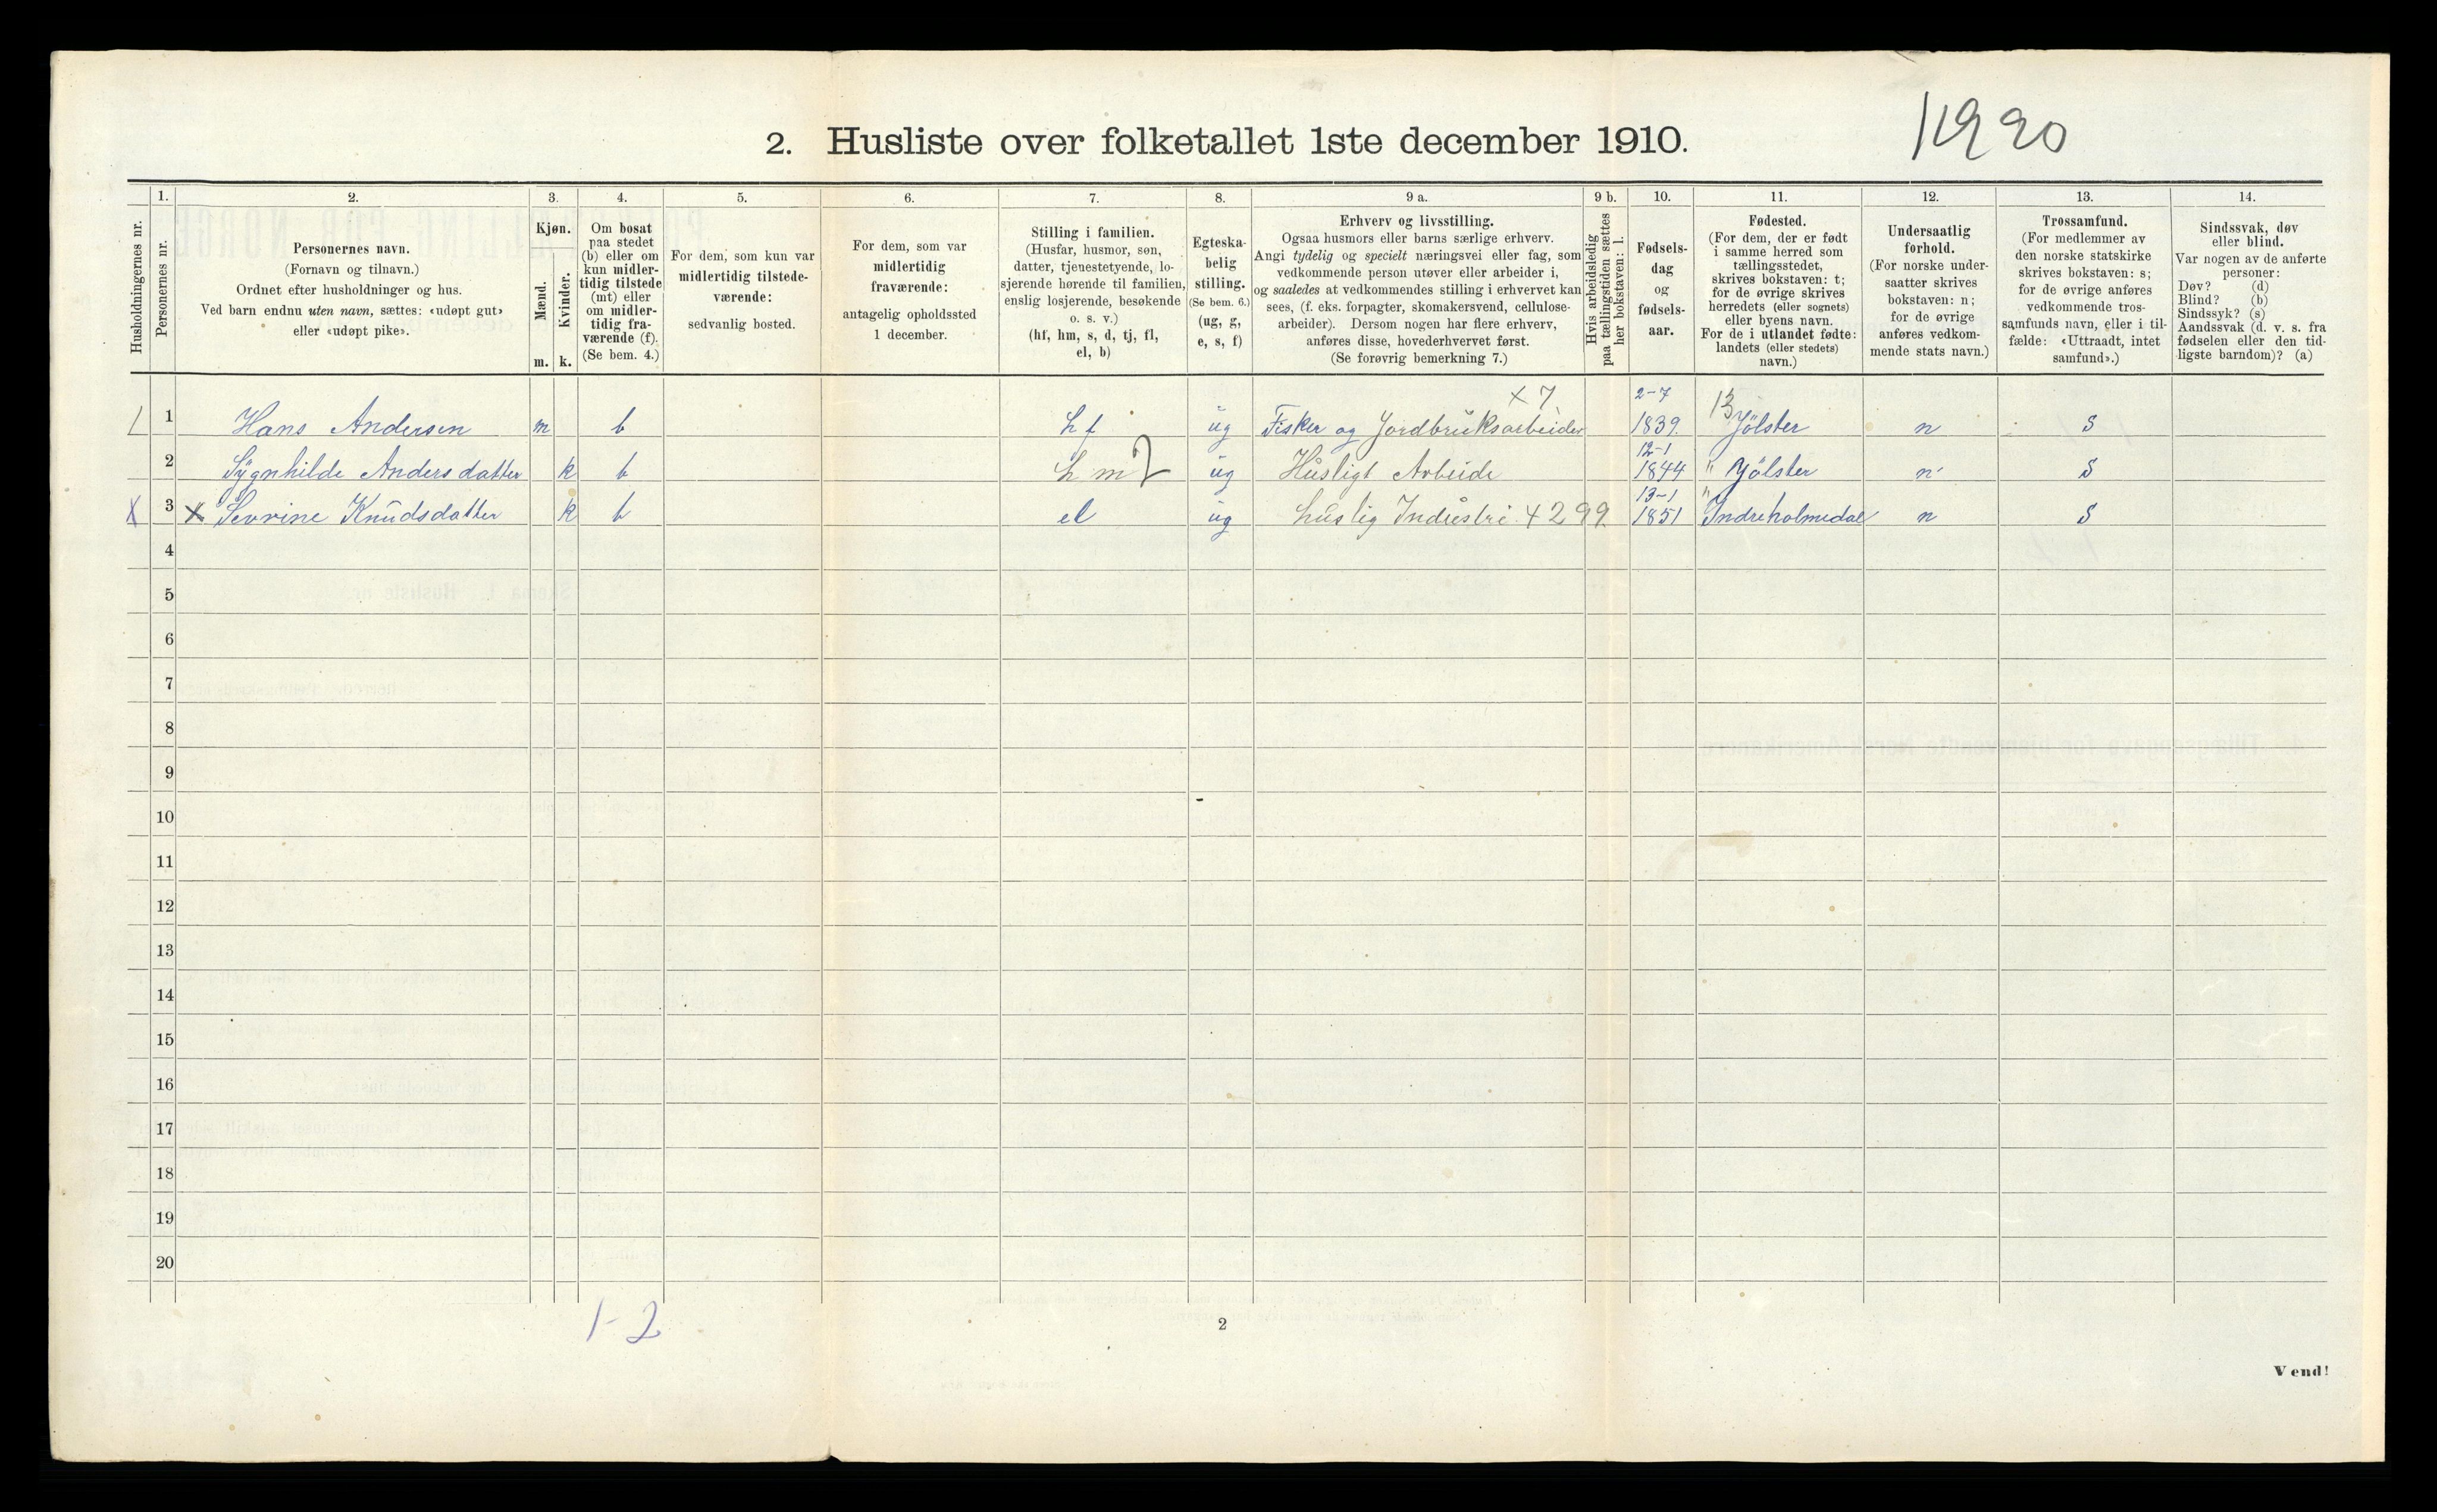 2. Husliste over folketallet 1ste december 1910.
1. 2. 3. 4. 5. 6. 7. 8. 9 a. 9 b. 10. 11. 12. 13. 14.
Husholdningernes nr.
Personernes nr.
Personernes navn.
(Fornavn og tilnavn.)
Ordnet efter husholdninger og hus.
Ved barn endnu uten navn, sættes: «udøpt gut»
eller «udøpt pike».
Kjøn.
Mænd.
Kvinder.
m. k.
Om bosat
paa stedet
(b) eller om
kun midler-
tidig tilstede
(mt) eller
om midler-
tidig fra-
værende (f).
(Se bem. 4.)
For dem, som kun var
midlertidig tilstede-
værende:
sedvanlig bosted.
For dem, som var
midlertidig
fraværende:
antagelig opholdssted
1 december.
Stilling i familien.
(Husfar, husmor, søn,
datter, tjenestetyende, lo-
sjerende hørende til familien,
enslig losjerende, besøkende
o. s. v.)
(hf, hm, s, d, tj, fl,
el, b)
Egteska-
belig
stilling.
(Se bem. 6.)
(ug, g,
e, s, f)
Erhverv og livsstilling.
Ogsaa husmors eller barns særlige erhverv.
Angi tydelig og specielt næringsvei eller fag, som
vedkommende person utøver eller arbeider i,
og saaledes at vedkommendes stilling i erhvervet kan
sees, (f. eks. forpagter, skomakersvend, cellulose-
arbeider). Dersom nogen har flere erhverv,
anføres disse, hovederhvervet først.
(Se forøvrig bemerkning 7.)
Hvis arbeidsledig
paa tællingstiden sættes
her bokstaven: l.
Fødsels-
dag
og
fødsels-
aar.
Fødested.
(For dem, der er født
i samme herred som
tællingsstedet,
skrives bokstaven: t;
for de øvrige skrives
herredets (eller sognets)
eller byens navn.
For de i utlandet fødte:
landets (eller stedets)
navn.)
Undersaatlig
forhold.
(For norske under-
saatter skrives
bokstaven: n;
for de øvrige
anføres vedkom-
mende stats navn.)
Trossamfund.
(For medlemmer av
den norske statskirke
skrives bokstaven: s;
for de øvrige anføres
vedkommende tros-
samfunds navn, eller i til-
fælde: «Uttraadt, intet
samfund».)
Sindssvak, døv
eller blind.
Var nogen av de anførte
personer:
Døv? (d)
Blind? (b)
Sindssyk? (s)
Aandssvak (d. v. s. fra
fødselen eller den tid-
ligste barndom)? (a)
x 7 2-7 13
1 Hans Andersen m b hf ug Fisker og Jordbruksarbeider 1839. Jölster n s
12-1
2 Sygnhilde Andersdatter k b hm ug Husligt Arbeide 1844 " Jölster n s
13-1 "
X 3 x Sevrine Knudsdatter k b el ug huslig Industri 4299. 1851 Indreholmedal n s
4
5
6
7
8
9
10
11
12
13
14
15
16
17
18
19
20
1-2
2
Vend!